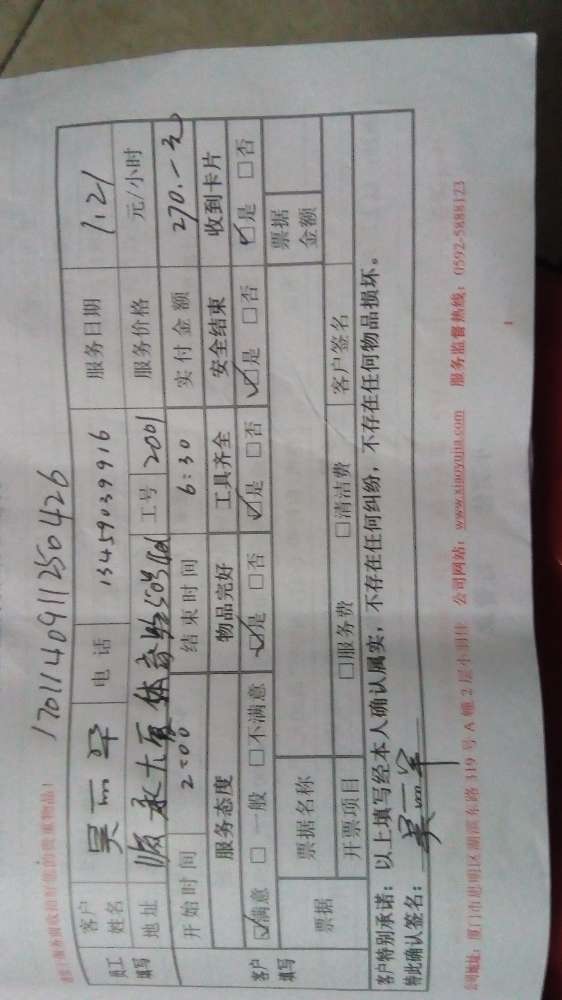 1701140911250426
请在服务前收拾好您的贵重物品！
员工填写
客户姓名 吴 电话 13459039916 服务日期 1.21
地址 大厦体育路 工号 2001 服务价格 元/小时
开始时间 2:00 结束时间 6:30 实付金额 270.-元
客户填写
服务态度 物品完好 工具齐全 安全结束 收到卡片
☑满意 □一般 □不满意 ☑是 □否 ☑是 □否 ☑是 □否 ☑是 □否
票据 票据名称 票据金额
开票项目 □服务费 □清洁费 客户签名
客户特别承诺：以上填写经本人确认属实，不存在任何纠纷，不存在任何物品损坏。
特此确认签名：吴
公司地址：厦门市思明区湖滨东路319号A幢2层小羽佳 公司网站：www.xiaoyujia.com 服务监督热线：0592-5888123